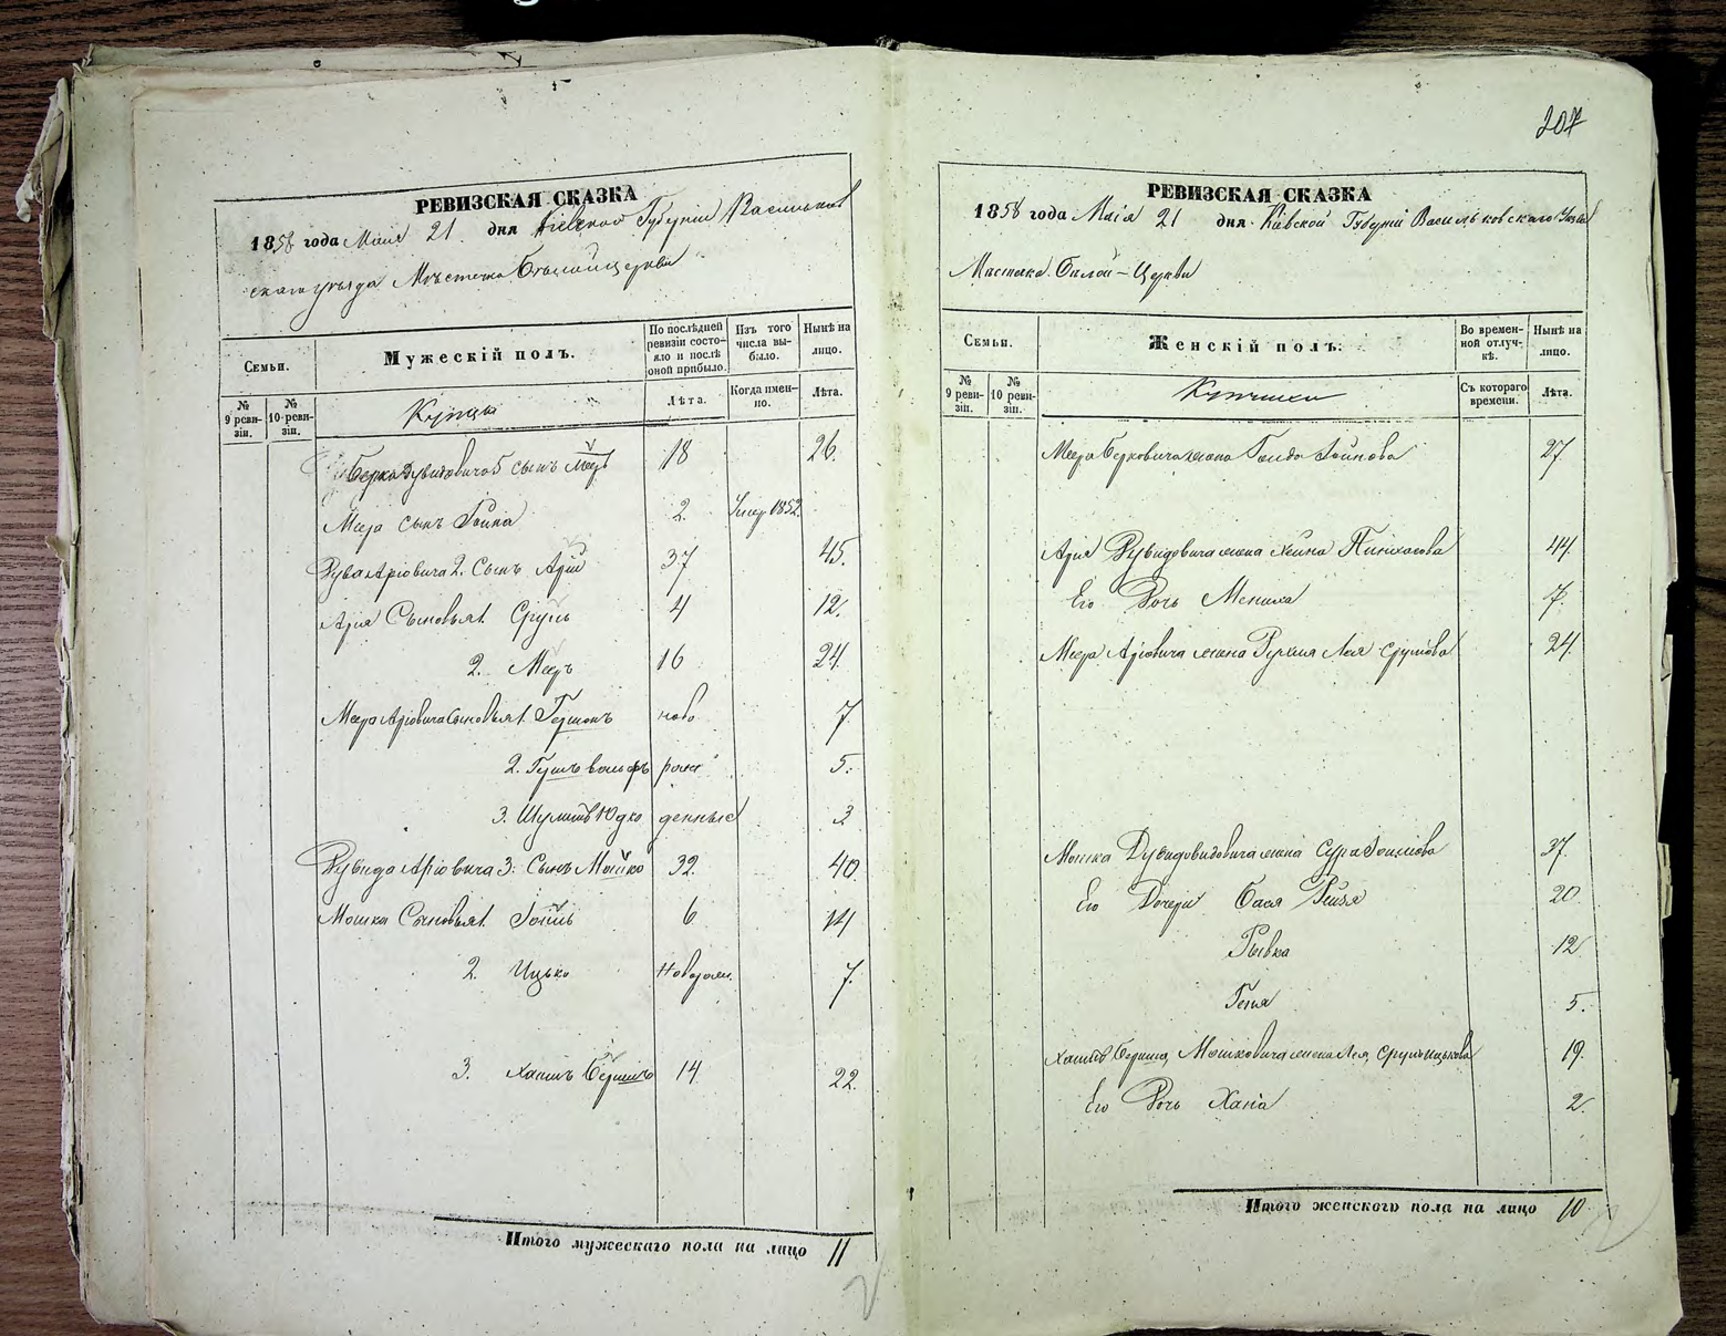 207
РЕВИЗСКАЯ СКАЗКА
1858 года Мая 21 дня Кіевской Губерніи Васильков
скаго уезда Мѣстечка Бѣлой церкви
Семьи.
Мужескій полъ.
По послѣдней ревизіи состояло и послѣ оной прибыло.
Изъ того числа выбыло.
Нынѣ на лицо.
№ 9 ревизіи.
№ 10 ревизіи.
Купцы
Лѣта.
Когда именно.
Лѣта.
Берка Дувидовича 5 сынъ Меръ 18 26.
Меера сынъ Іойна 2. Умер 1852.
Дувида Аріовича 2. Сынъ Арій 37 45.
Арія Сыновья 1. Сруль 4 12.
2. Мееръ 16 24.
Меера Аріовича Сыновья 1. Гершонъ ново 7
2. Гушъ вольфъ рож 5.
3. Шулимъ Юдко денные 3
Дувида Аріовича 3. Сынъ Мошко 32. 40.
Мошка Сыновья 1. Іойль 6 14
2. Ицько Новорож. 7.
3. Хаимъ Бериш 14 22.
Итого мужескаго пола на лицо 11
РЕВИЗСКАЯ СКАЗКА
1858 года Маія 21 дня Кіевской Губерніи Васильковскаго Уезда
Местечка Белой-Церкви
Семьи.
Женскій полъ.
Во временной отлучкѣ.
Нынѣ на лицо.
№ 9 ревизіи.
№ 10 ревизіи.
Купчихи
Съ котораго времени.
Лѣта.
Меера Берковича жена Голда Іойнова 27
Арія Дувидовича жена Хина Пинхасова 44
Его Дочь Мениха 7.
Меера Аріовича жена Рухля Лея Срулева 24
Мошка Дувидовидовича жена Сура Іоилиова 37.
Его Дочери Бася Рейзя 20
Рывка 12
Геня 5.
Хаимъ Бериша Мошковича жена Лея Сруль Ицькова 19.
Его Дочь Хана 2.
Итого женского пола на лицо 10